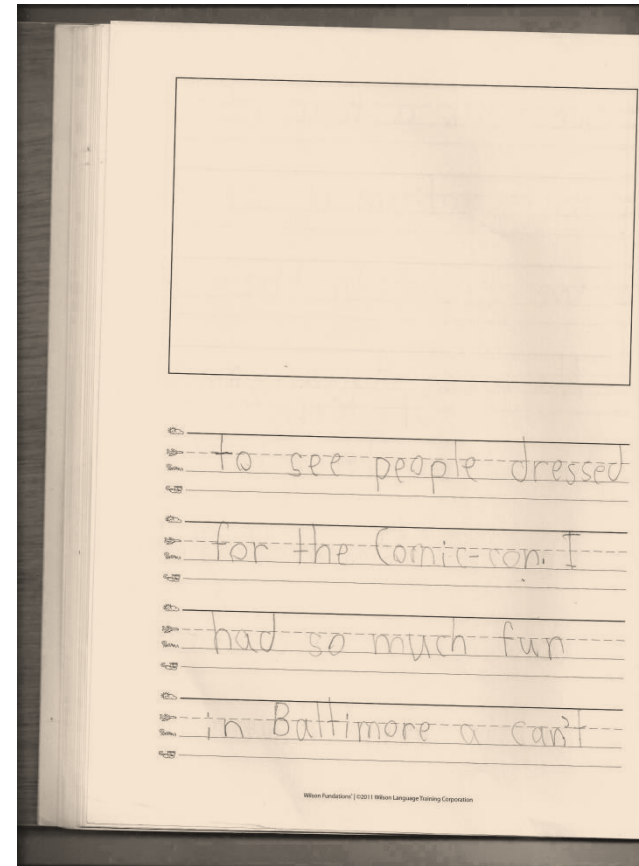 to see people dressed
for the Comic-con. I
had so much fun
in Baltimore a can't
Wilson Fundations® | ©2011 Wilson Language Training Corporation